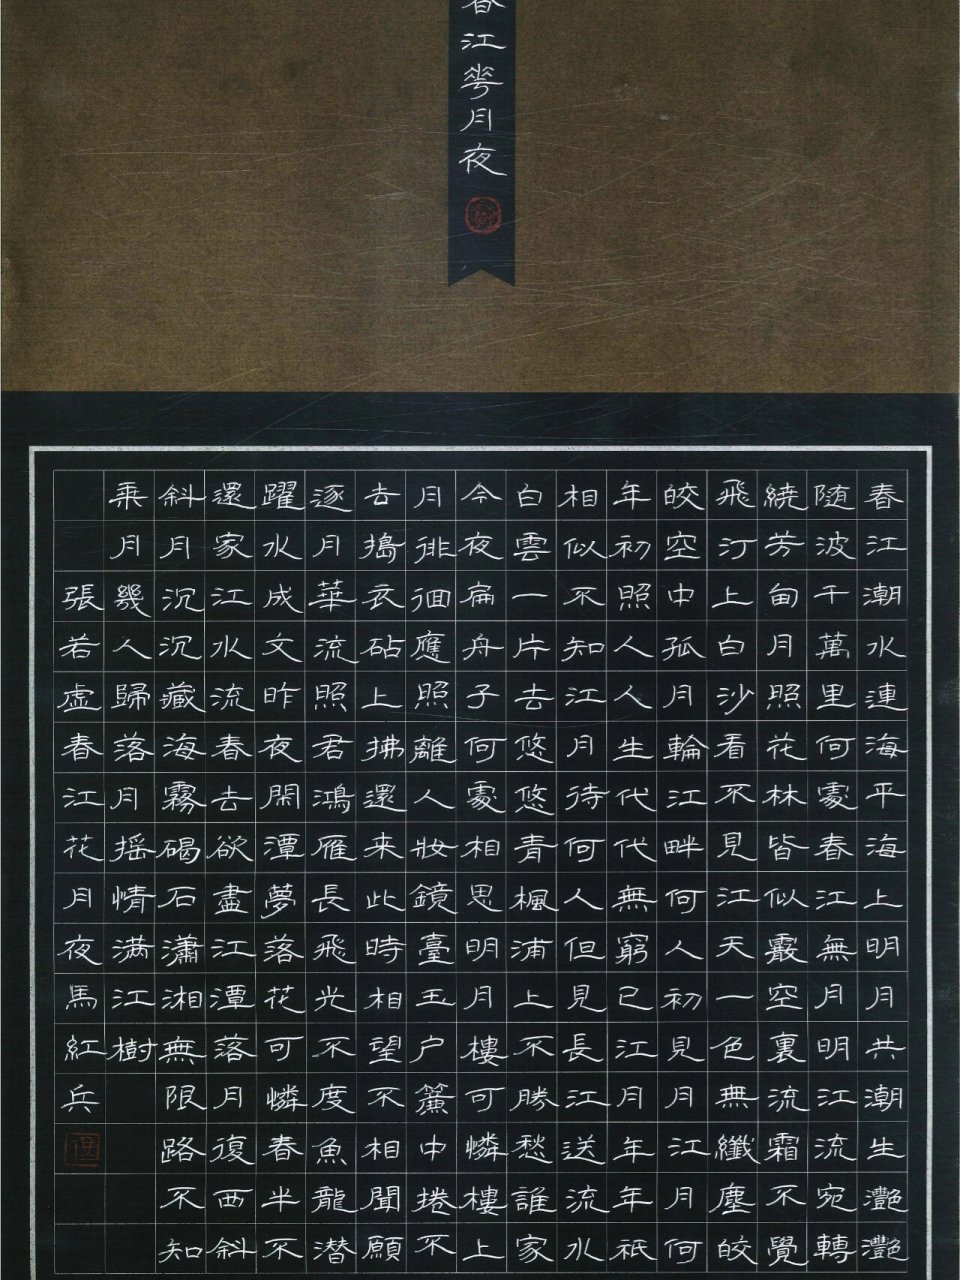 春江華月夜
春江潮水連海平海上明月共潮生灩灩
随波千萬里何處春江無月明江流宛轉
繞芳甸月照花林皆似霰空裏流霜不覺
飛汀上白沙看不見江天一色無纖塵皎
皎空中孤月輪江畔何人初見月江月何
年初照人人生代代無窮已江月年年祇
相似不知江月待何人但見長江送流水
白雲一片去悠悠青楓浦上不勝愁誰家
今夜扁舟子何處相思明月樓可憐樓上
月徘徊應照離人妝鏡臺玉户簾中捲不
去搗衣砧上拂還来此時相望不相聞願
逐月華流照君鴻雁長飛光不度魚龍潜
躍水成文昨夜閑潭夢落花可憐春半不
還家江水流春去欲盡江潭落月復西斜
斜月沉沉藏海霧碣石瀟湘無限路不知
乘月幾人歸落月摇情满江樹
張若虚春江花月夜馬紅兵